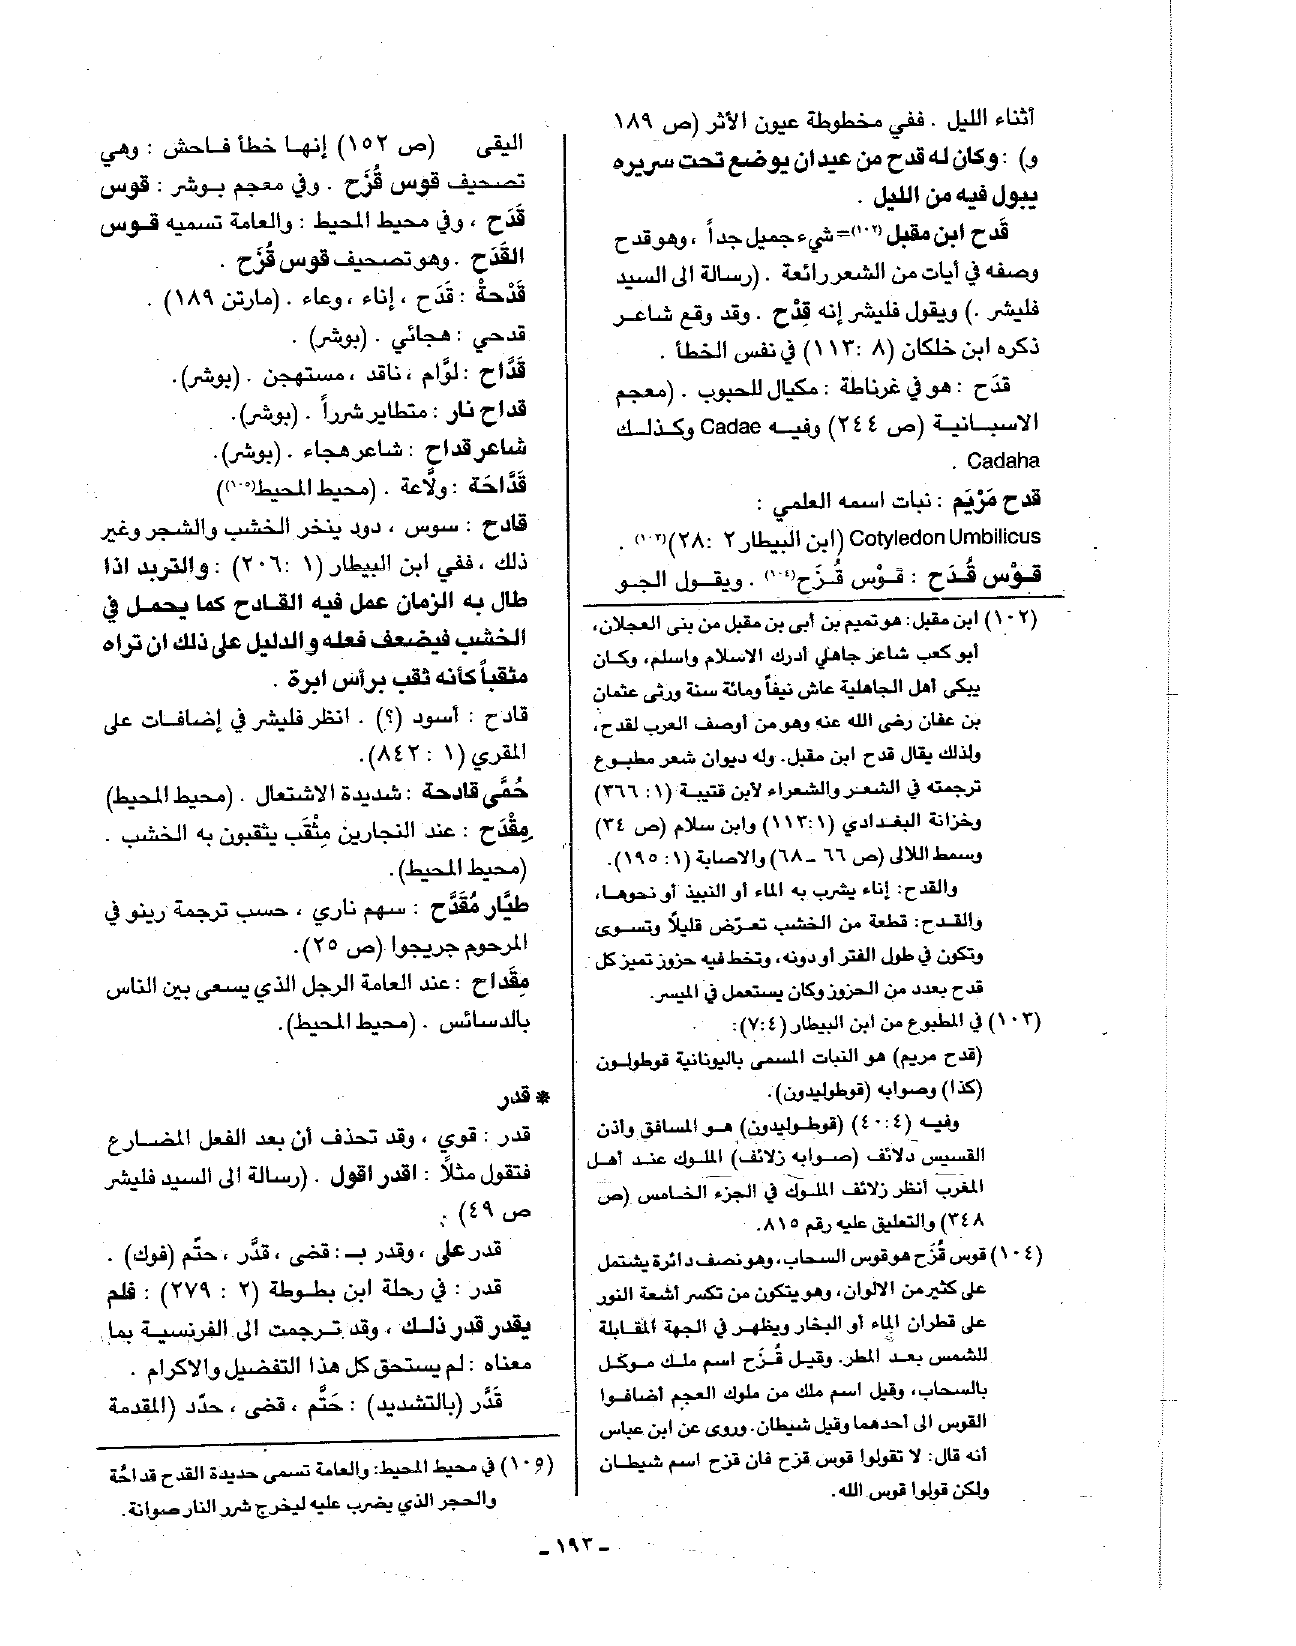 أثناء الليل . ففي مخطوطة عيون الأثر (ص ١٨٩
و) : وكان له قدح من عيدان يوضع تحت سريره
يبول فيه من الليل .
قَدح ابن مقبل (١٠٢)= شيء جميل جداً ، وهو قدح
وصفه في أيات من الشعر رائعة . (رسالة الى السيد
فليشر .) ويقول فليشر إنه قِدْح . وقد وقع شاعر
ذكره ابن خلكان (٨ :١١٣) في نفس الخطأ .
قدَح : هو في غرناطة : مكيال للحبوب . (معجم
الاسبانية (ص ٢٤٤) وفيه Cadae وكذلك
Cadaha .
قدح مَرْيَم : نبات اسمه العلمي :
Cotyledon Umbilicus (ابن البيطار ٢ :٢٨)(١٠٣) .
قَوْس قُدَح : قَوْس قُزَح(١٠٤) . ويقول الجو
(١٠٢) ابن مقبل: هو تميم بن أبى بن مقبل من بنى العجلان،
أبو كعب شاعر جاهلي أدرك الاسلام واسلم، وكان
يبكى أهل الجاهلية عاش نيفاً ومائة سنة ورثى عثمان
بن عفان رضى الله عنه وهو من أوصف العرب لقدح،
ولذلك يقال قدح ابن مقبل. وله ديوان شعر مطبوع
ترجمته في الشعر والشعراء لأبن قتيبة (١ :٣٦٦)
وخزانة البغدادي (١:١١٣) وابن سلام (ص ٣٤)
وسمط اللالى (ص ٦٦ -٦٨) والاصابة (١ :١٩٥).
والقدح: إناء يشرب به الماء أو النبيذ أو نحوها،
والقدح: قطعة من الخشب تعرّض قليلاً وتسوى
وتكون في طول الفتر أو دونه، وتخط فيه حزوز تميز كل
قدح بعدد من الحزوز وكان يستعمل في الميسر.
(١٠٣) في المطبوع من ابن البيطار (٧:٤):
(قدح مريم) هو النبات المسمى باليونانية قوطولون
(كذا) وصوابه (قوطوليدون).
وفيه (٤٠:٤) (قوطوليدون) هو المسافق واذن
القسيس دلائف (صوابه زلائف) الملوك عند أهل
المغرب أنظر زلائف الملوك في الجزء الخامس (ص
٣٤٨) والتعليق عليه رقم ٨١٥.
(١٠٤) قوس قُزَح هو قوس السحاب، وهو نصف دائرة يشتمل
على كثير من الالوان، وهو يتكون من تكسر أشعة النور
على قطران الماء أو البخار ويظهر في الجهة المقابلة
للشمس بعد المطر. وقيل قُزَح اسم ملك موكل
بالسحاب، وقيل اسم ملك من ملوك العجم أضافوا
القوس الى أحدهما وقيل شيطان. وروى عن ابن عباس
أنه قال: لا تقولوا قوس قزح فان قزح اسم شيطان
ولكن قولوا قوس الله.
اليقى (ص ١٥٢) إنها خطأ فاحش : وهي
تصحيف قوس قُزَح . وفي معجم بوشر : قوس
قَدَح ، وفي محيط المحيط : والعامة تسميه قوس
القَدَح . وهو تصحيف قوس قُزَح .
قَدْحةْ : قَدَح ، إناء ، وعاء . (مارتن ١٨٩) .
قدحي : هجائي . (بوشر) .
قَدَّاح : لوَّام ، ناقد ، مستهجن . (بوشر).
قداح نار : متطاير شرراً . (بوشر).
شاعر قداح : شاعر هجاء . (بوشر).
قَدَّاحَة : ولاَّعة . (محيط المحيط(١٠٥))
قادح : سوس ، دود ينخر الخشب والشجر وغير
ذلك ، ففي ابن البيطار (١ :٢٠٦) : والتربد اذا
طال به الزمان عمل فيه القادح كما يحمل في
الخشب فيضعف فعله والدليل على ذلك ان تراه
مثقباً كأنه ثقب برأس ابرة .
قادح : أسود (؟) . انظر فليشر في إضافات على
المقري (١ : ٨٤٢).
حُمَّى قادحة : شديدة الاشتعال . (محيط المحيط)
مِقْدَح : عند النجارين مِثْقَب يثقبون به الخشب .
(محيط المحيط).
طيَّار مُقَدَّح : سهم ناري ، حسب ترجمة رينو في
المرحوم جريجوا (ص ٢٥).
مِقَداح : عند العامة الرجل الذي يسعى بين الناس
بالدسائس . (محيط المحيط).
* قدر
قدر : قوي ، وقد تحذف أن بعد الفعل المضارع
فتقول مثلاً : اقدر اقول . (رسالة الى السيد فليشر
ص ٤٩) :
قدر على ، وقدر بـ : قضى ، قدَّر ، حتَّم (فوك) .
قدر : في رحلة ابن بطوطة (٢ : ٢٧٩) : فلم
يقدر قدر ذلك ، وقد ترجمت الى الفرنسية بما
معناه : لم يستحق كل هذا التفضيل والاكرام .
قَدَّر (بالتشديد) : حَتَّم ، قضى ، حدّد (المقدمة
(١٠٥) في محيط المحيط: والعامة تسمى حديدة القدح قداحَّة
والحجر الذي يضرب عليه ليخرج شرر النار صوانة.
- ١٩٣ -